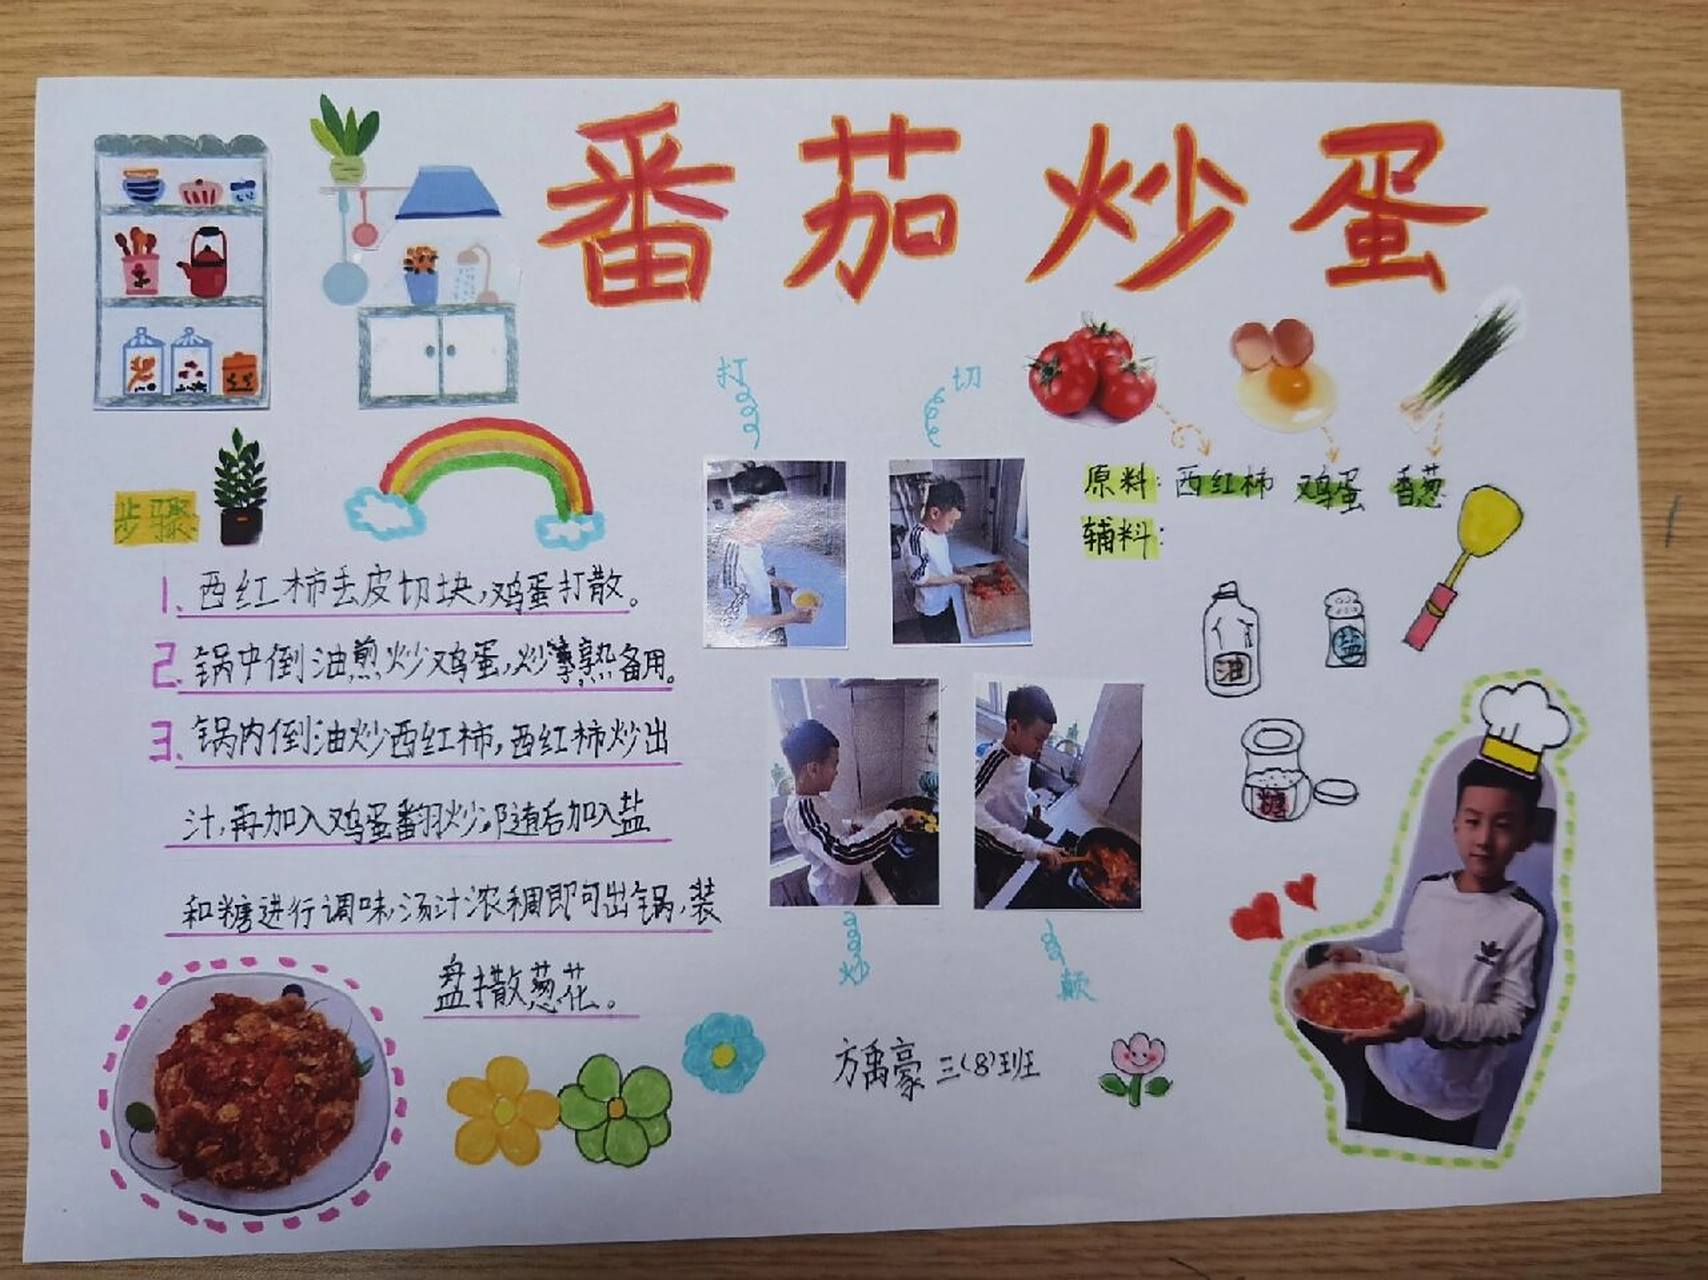 番茄炒蛋
打
切
原料：西红柿 鸡蛋 香葱
辅料：
油
盐
糖
步骤
1、西红柿去皮切块，鸡蛋打散。
2、锅中倒油煎炒鸡蛋，炒熟备用。
3、锅内倒油炒西红柿，西红柿炒出
汁，再加入鸡蛋翻炒，随后加入盐
和糖进行调味，汤汁浓稠即可出锅，装
盘撒葱花。
炒
颠
方禹豪 三(8)班